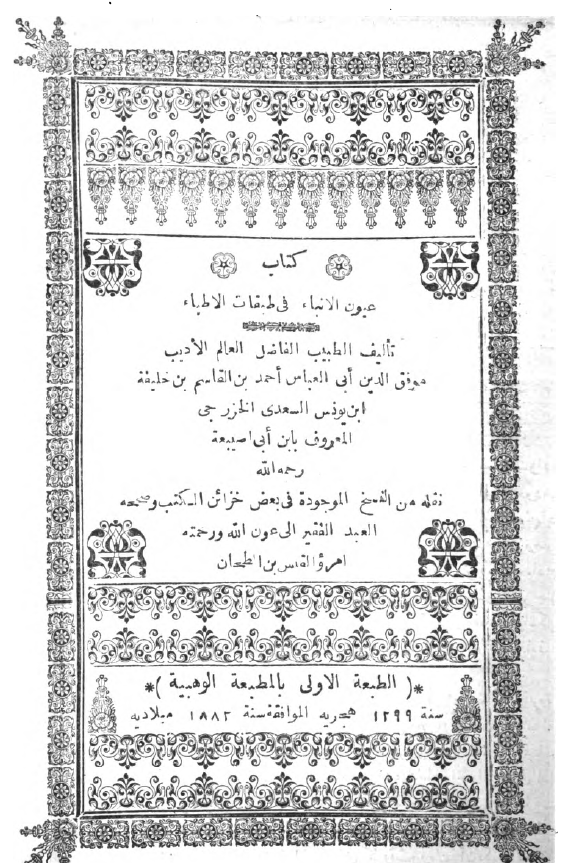 كتاب
عيون الانباء فى طبقات الاطباء
تأليف الطبيب الفاضل العالم الأديب
موفق الدين أبى العباس أحمد بن القاسم بن خليفة
ابن يونس السعدى الخزرجى
المعروف بابن أبى اصيبعة
رحمه الله
نقله من النسخ الموجودة فى بعض خزائن الكتب وصححه
العبد الفقير الى عون الله ورحمته
امرؤ القيس بن الطحان
*( الطبعة الاولى بالمطبعة الوهبية )*
سنة ١٢٩٩ هجريه الموافقة سنة ١٨٨٢ ميلاديه